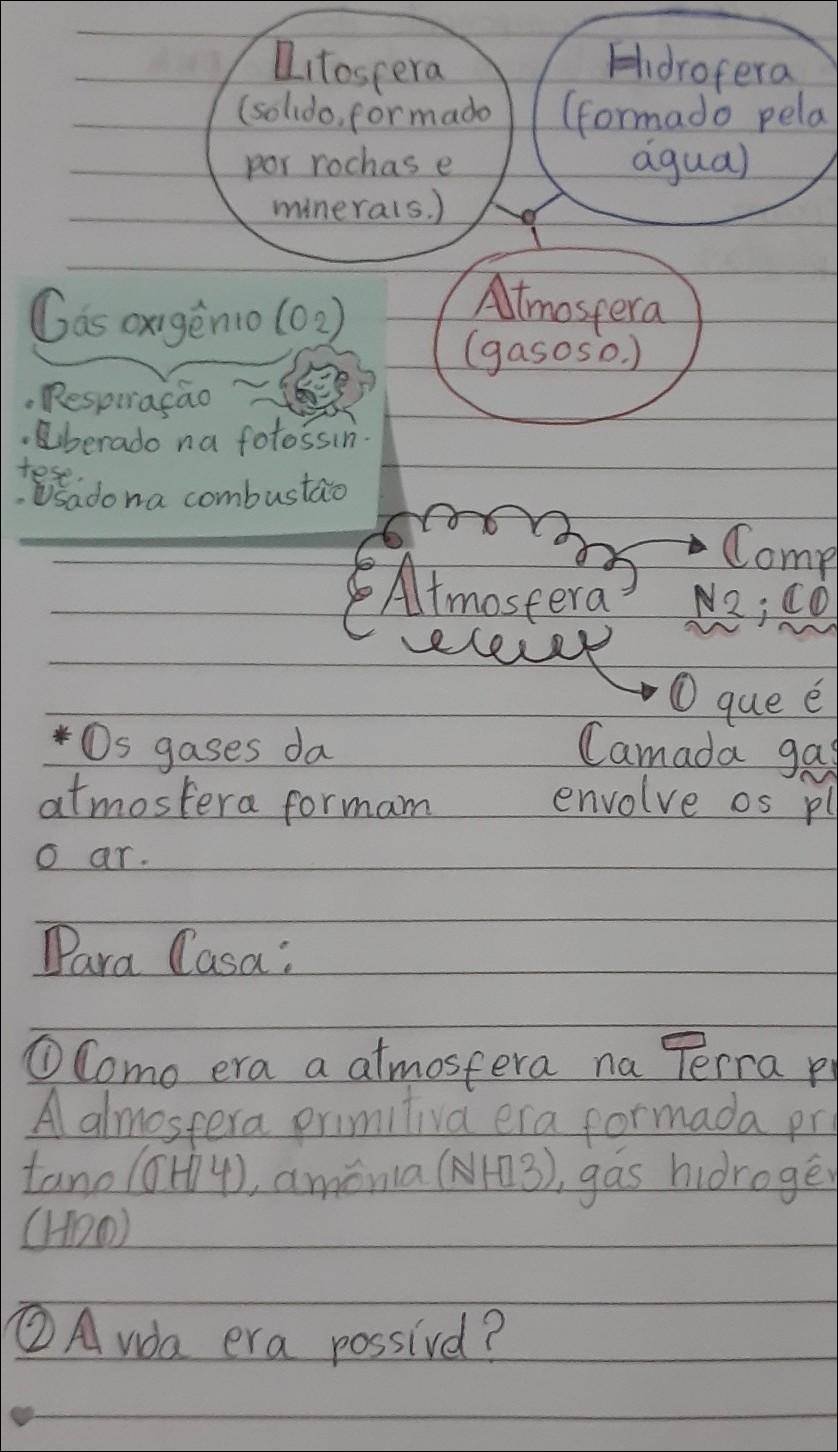 Litosfera
(sólido, formado
por rochas e
minerais.)
Hidrofera
(formado pela
água)
Atmosfera
(gasoso.)
Gás oxigênio (O2)
• Respiração
• Liberado na fotossín-
tese.
• Usado na combustão
Atmosfera
Comp
N2; CO
O que é
Camada gas
envolve os pl
* Os gases da
atmosfera formam
o ar.
Para Casa:
① Como era a atmosfera na Terra pr
A atmosfera primitiva era formada pri
tano (CH4), amônia (NH3), gás hidrogên
(H2O)
② A vida era possível?